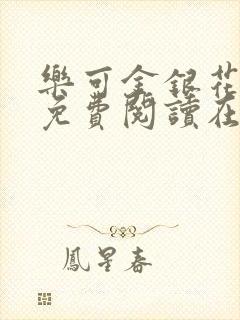 樂可金銀花
免費閱讀在
鳳星春